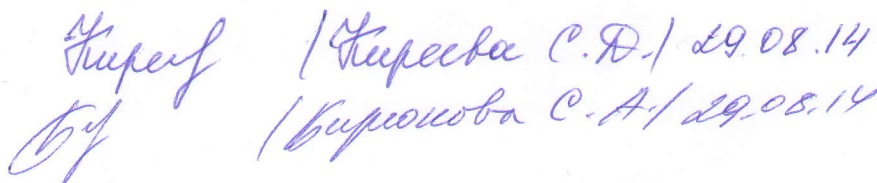 Кирев /Киреева С.Д./ 29.08.14
/Бирюкова С.А./ 29.08.14